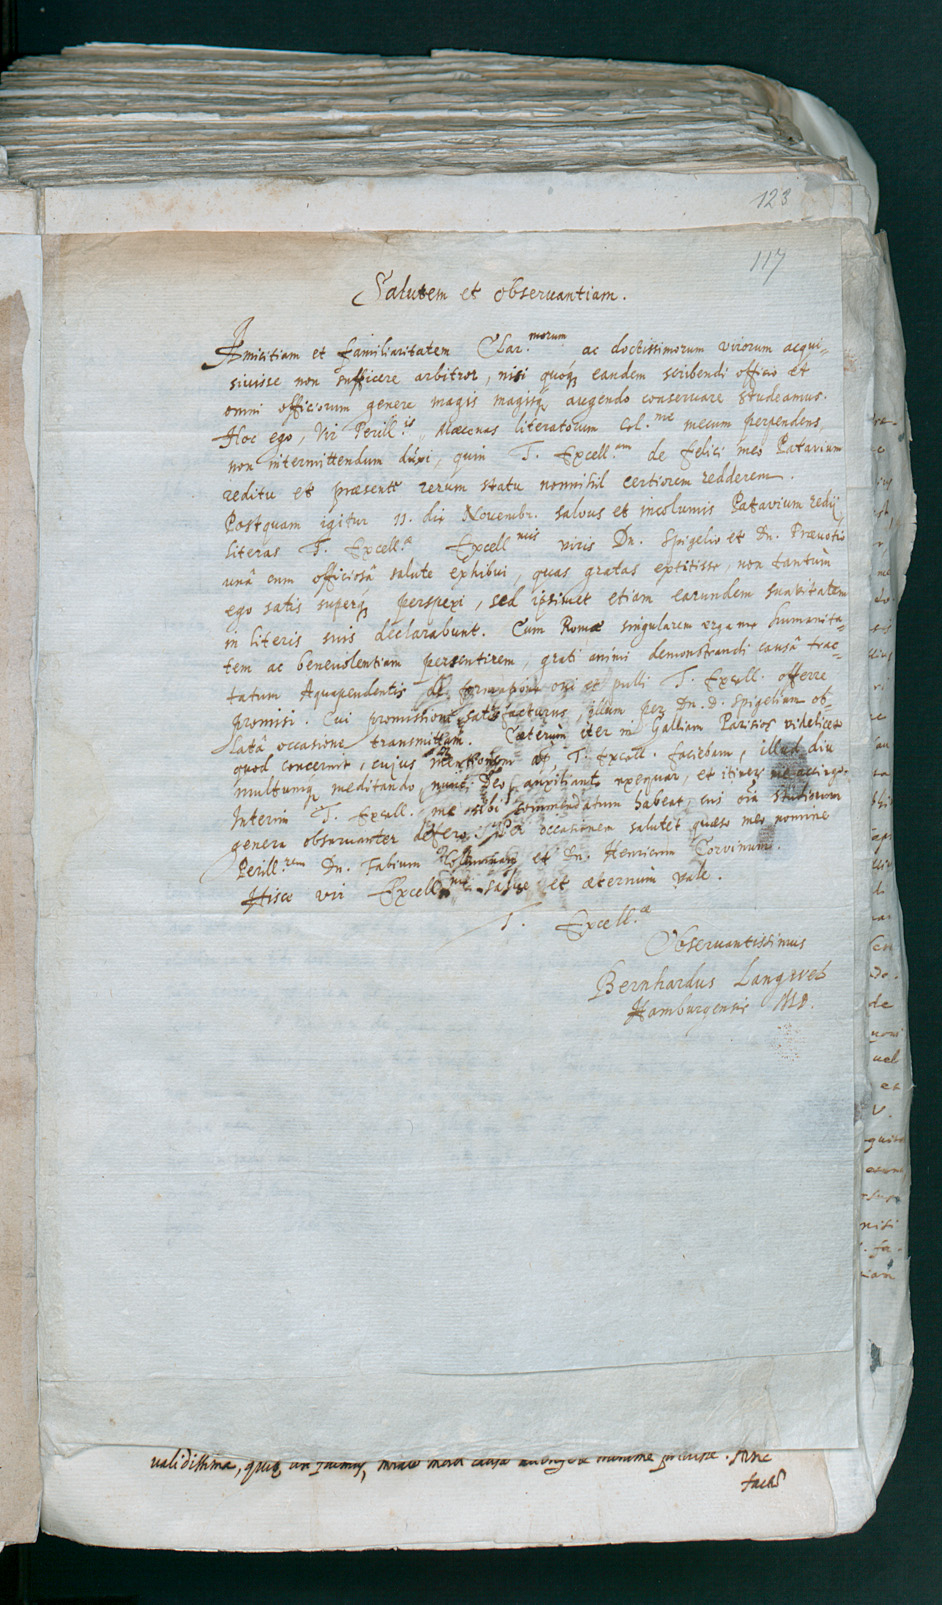 123
117
Salutem et observantiam.
Amicitiam et familiaritatem Clar.morum ac doctissimorum virorum acqui-
sivisse non sufficere arbitror, nisi quoq; eandem scribendi officio et
omni officiorum genere magis magisq; augendo conservare studeamus.
Hoc ego, Vir Perill.is, Mæcenas literatorum Col.me mecum perpendens,
non intermittendum duxi, quin T. Excell.am de felici meo Patavium
reditu et præsenti rerum statu nonnihil certiorem redderem.
Postquam igitur 11. die Novembr. salvus et incolumis Patavium redij
literas T. Excell.æ Excell.mis viris Dn. Spigelio et Dn. Prævotio
unâ cum officiosâ salute exhibui, quas gratas extitisse, non tantùm
ego satis superq; perspexi, sed ipsimet etiam earundem suavitatem
in literis suis declarabunt. Cum Romæ singularem erga me humanita-
tem ac benevolentiam persentirem, grati animi demonstrandi causâ trac-
tatum Aquapendentis de formatione ovi et pulli T. Excell. offerre
promisi. Cui promissioni satisfacturus, illum per Dn. D. Spigelium ob-
latâ occasione transmittam. Cæterum iter in Galliam Parisios videlicet
quod concernit, cujus mentionem T. Excell. faciebam, illud diu
multumq; meditando, nunc Deo auxiliante exequar, et itineri me accingo.
Interim T. Excell. me sibi commendatum habeat, cui oĩa studiorum
genera observanter defero. Per occasionem salutet quæso meo nomine
Perill.rem Dn. Fabium et Dn. Henricum Corvinum.
Hisce vir Excell.me salve et æternùm vale.
T. Excell.æ
Observantissimus
Bernhardus Langwed
Hamburgensis
validissima, quiq; mora causa minime
facto